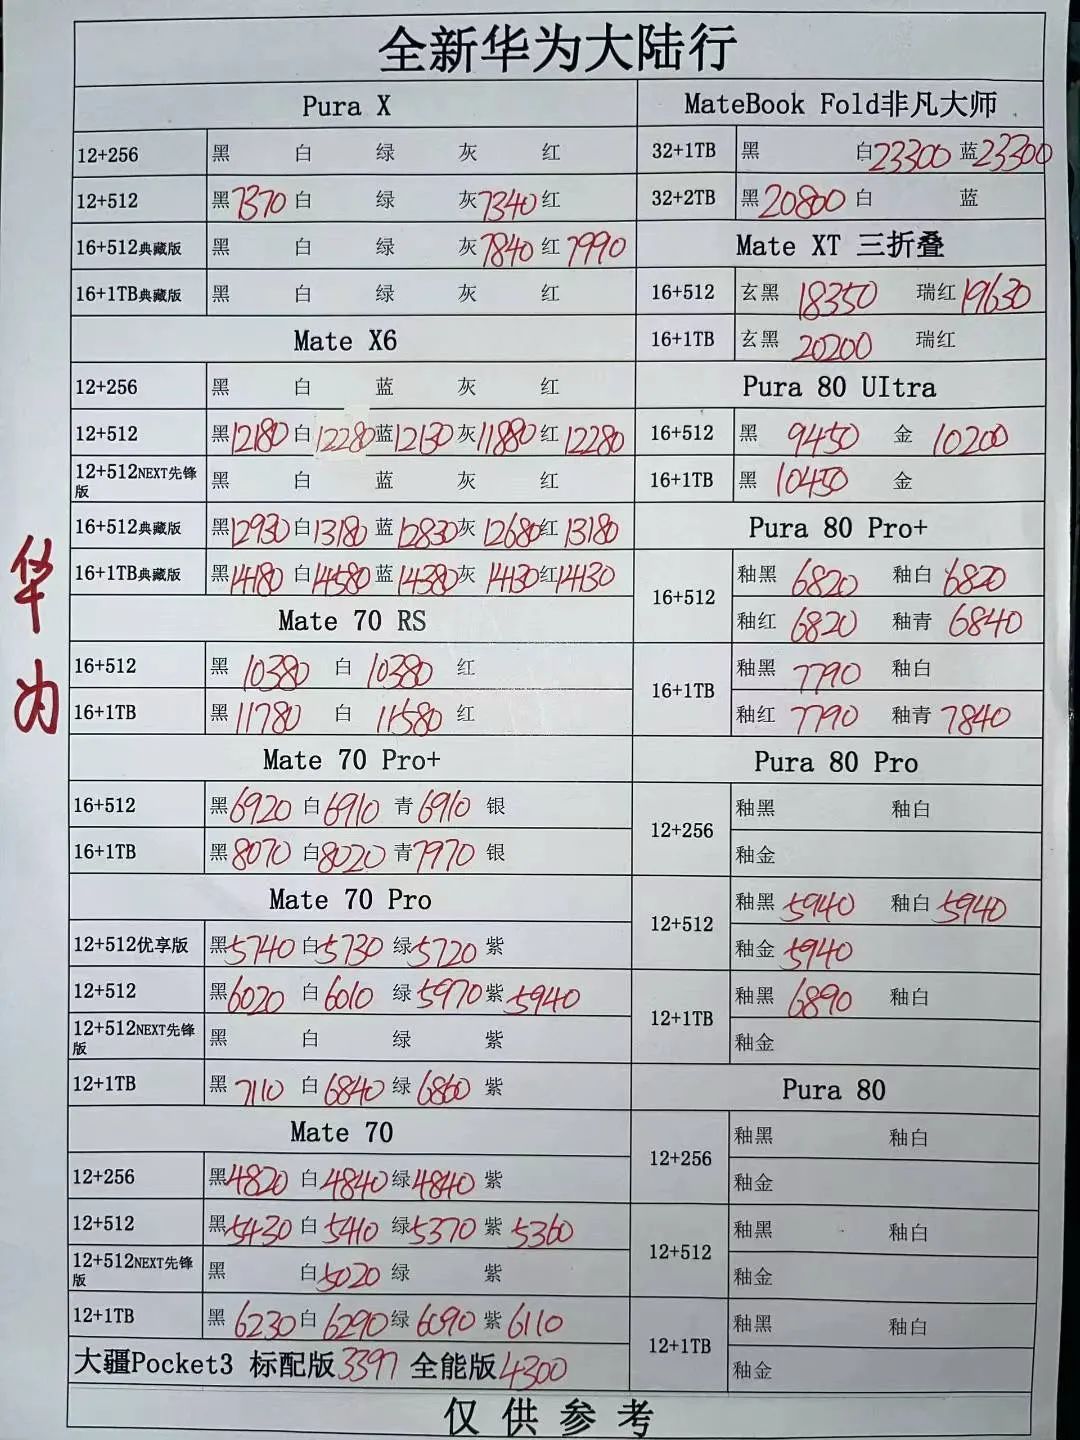 全新华为大陆行
Pura X
12+256 黑 白 绿 灰 红
12+512 黑7370 白 绿 灰7340 红
16+512典藏版 黑 白 绿 灰7840 红7990
16+1TB典藏版 黑 白 绿 灰 红
Mate X6
12+256 黑 白 蓝 灰 红
12+512 黑12180 白12280 蓝12130 灰11880 红12280
12+512NEXT先锋版 黑 白 蓝 灰 红
16+512典藏版 黑12930 白13180 蓝12830 灰12680 红13180
16+1TB典藏版 黑14180 白14580 蓝14380 灰14130 红14130
Mate 70 RS
16+512 黑10380 白10380 红
16+1TB 黑11780 白11580 红
Mate 70 Pro+
16+512 黑6920 白6910 青6910 银
16+1TB 黑8070 白8020 青7970 银
Mate 70 Pro
12+512优享版 黑5740 白5730 绿5720 紫
12+512 黑6020 白6010 绿5970 紫5940
12+512NEXT先锋版 黑 白 绿 紫
12+1TB 黑7110 白6840 绿6860 紫
Mate 70
12+256 黑4820 白4840 绿4840 紫
12+512 黑5430 白5410 绿5370 紫5360
12+512NEXT先锋版 黑 白5020 绿 紫
12+1TB 黑6230 白6290 绿6090 紫6110
大疆Pocket3 标配版3397 全能版4300
MateBook Fold非凡大师
32+1TB 黑 白23300 蓝23300
32+2TB 黑20800 白 蓝
Mate XT 三折叠
16+512 玄黑 18350 瑞红19630
16+1TB 玄黑 20200 瑞红
Pura 80 UItra
16+512 黑 9450 金 10200
16+1TB 黑 10450 金
Pura 80 Pro+
16+512 釉黑 6820 釉白 6820
釉红 6820 釉青 6840
16+1TB 釉黑 7790 釉白
釉红 7790 釉青 7840
Pura 80 Pro
12+256 釉黑 釉白
釉金
12+512 釉黑 5940 釉白 5940
釉金 5940
12+1TB 釉黑 6890 釉白
釉金
Pura 80
12+256 釉黑 釉白
釉金
12+512 釉黑 釉白
釉金
12+1TB 釉黑 釉白
釉金
仅供参考
华为